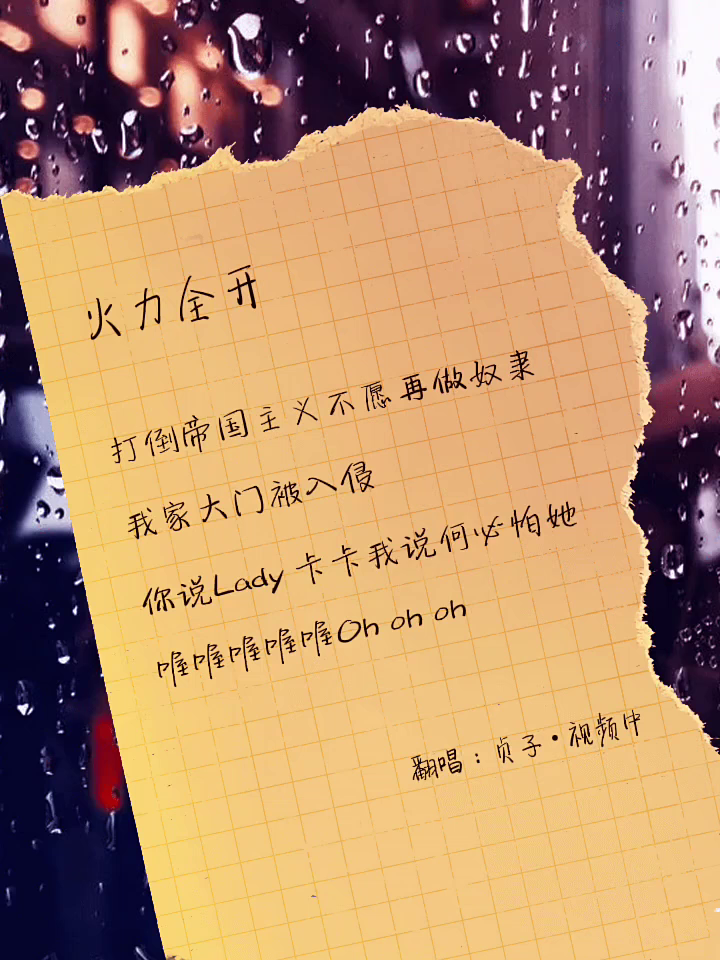 火力全开
打倒帝国主义不愿再做奴隶
我家大门被入侵
你说Lady 卡卡我说何必怕她
喔喔喔喔喔Oh oh oh
翻唱：贞子·视频中